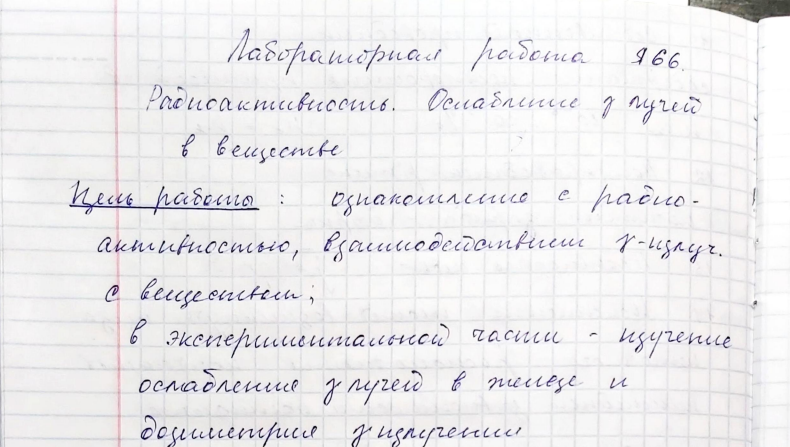 Лабораторная работа №66.
Радиоактивность. Ослабление γ лучей
в веществе
Цель работы : ознакомление с радио-
активностью, взаимодействием γ-излуч.
с веществом;
в экспериментальной части - изучение
ослабления γ лучей в железе и
дозиметрия γ излучения